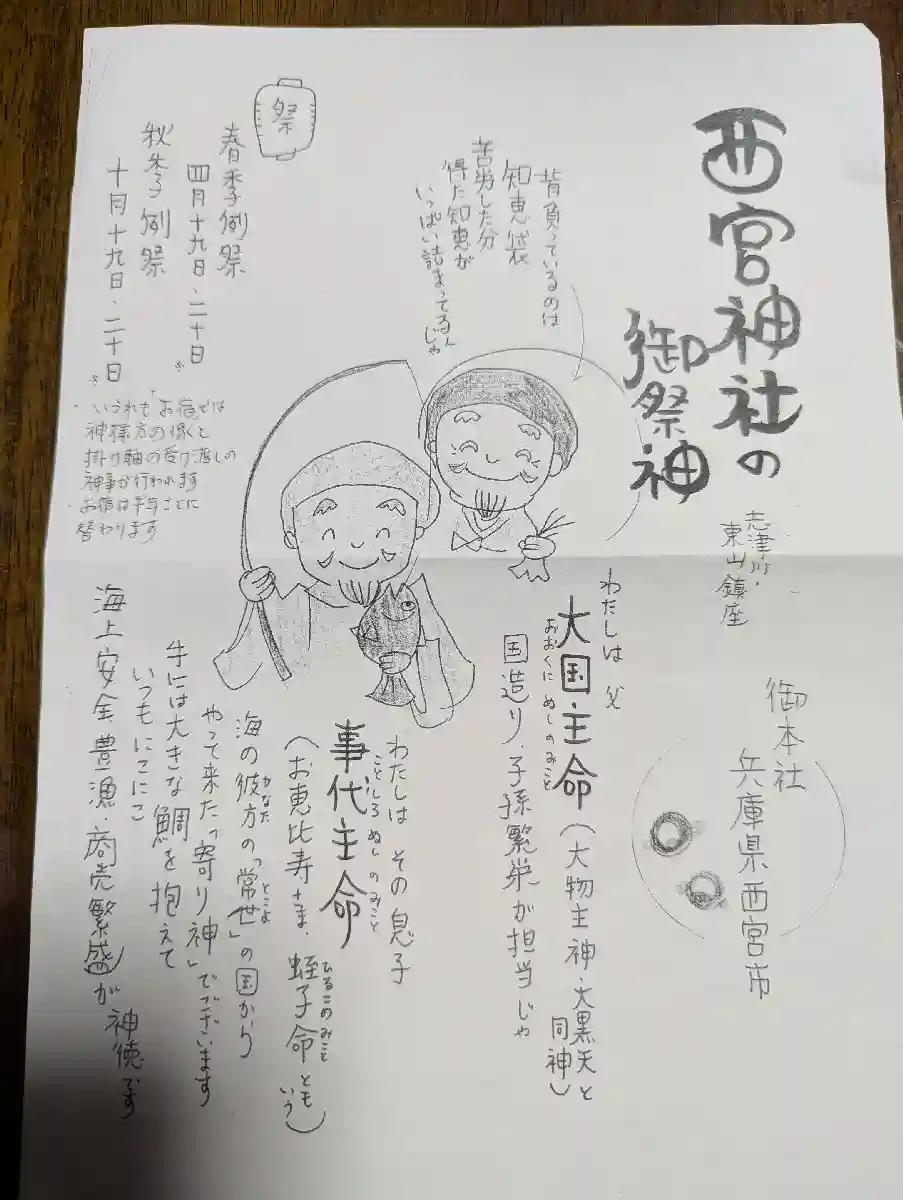 西宮神社の
御祭神
志津川・
東山鎮座
御本社
兵庫県西宮市
背負っているのは
知恵袋
苦労した分
得た知恵が
いっぱい詰まってるん
じゃ
わたしは 父
大国主命(大物主神・大黒天と
おおくに ぬしのみこと
同神)
国造り・子孫繁栄が担当じゃ
わたしは その息子
事代主命
ことしろ ぬしのみこと
(お恵比寿さま、蛭子命とも
ひるこのみこと
いう)
海の彼方の「常世」の国から
かなた
とこよ
やって来た「寄り神」でございます
手には大きな鯛を抱えて
いつもにこにこ
海上安全、豊漁・商売繁盛が
神徳です
祭
春季例祭
四月十九日・二十日
※
秋季例祭
十月十九日・二十日
※
・いづれも「お宿」では
神様方の像と
掛け軸の受け渡しの
神事が行われます
・お宿は半年ごとに
替わります